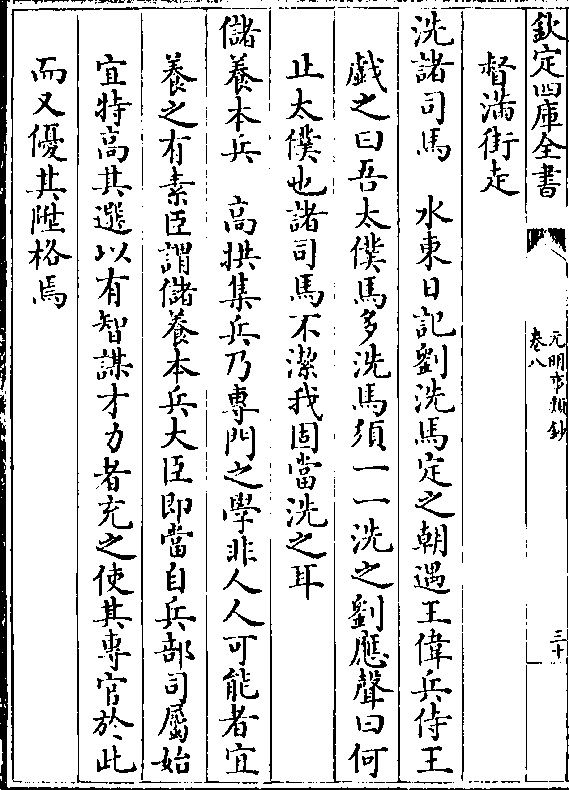 欽定四庫全書
元明事類鈔
卷八
三十
督滿街走
洗諸司馬　水東日記劉洗馬定之朝遇王偉兵侍王
戯之曰吾太僕馬多洗馬須一一洗之劉應聲曰何
止太僕也諸司馬不潔我固當洗之耳
儲養本兵　高拱集兵乃專門之學非人人可能者宜
養之有素臣謂儲養本兵大臣即當自兵部司屬始
宜特高其選以有智謀才力者充之使其專官於此
而又優其陞格焉